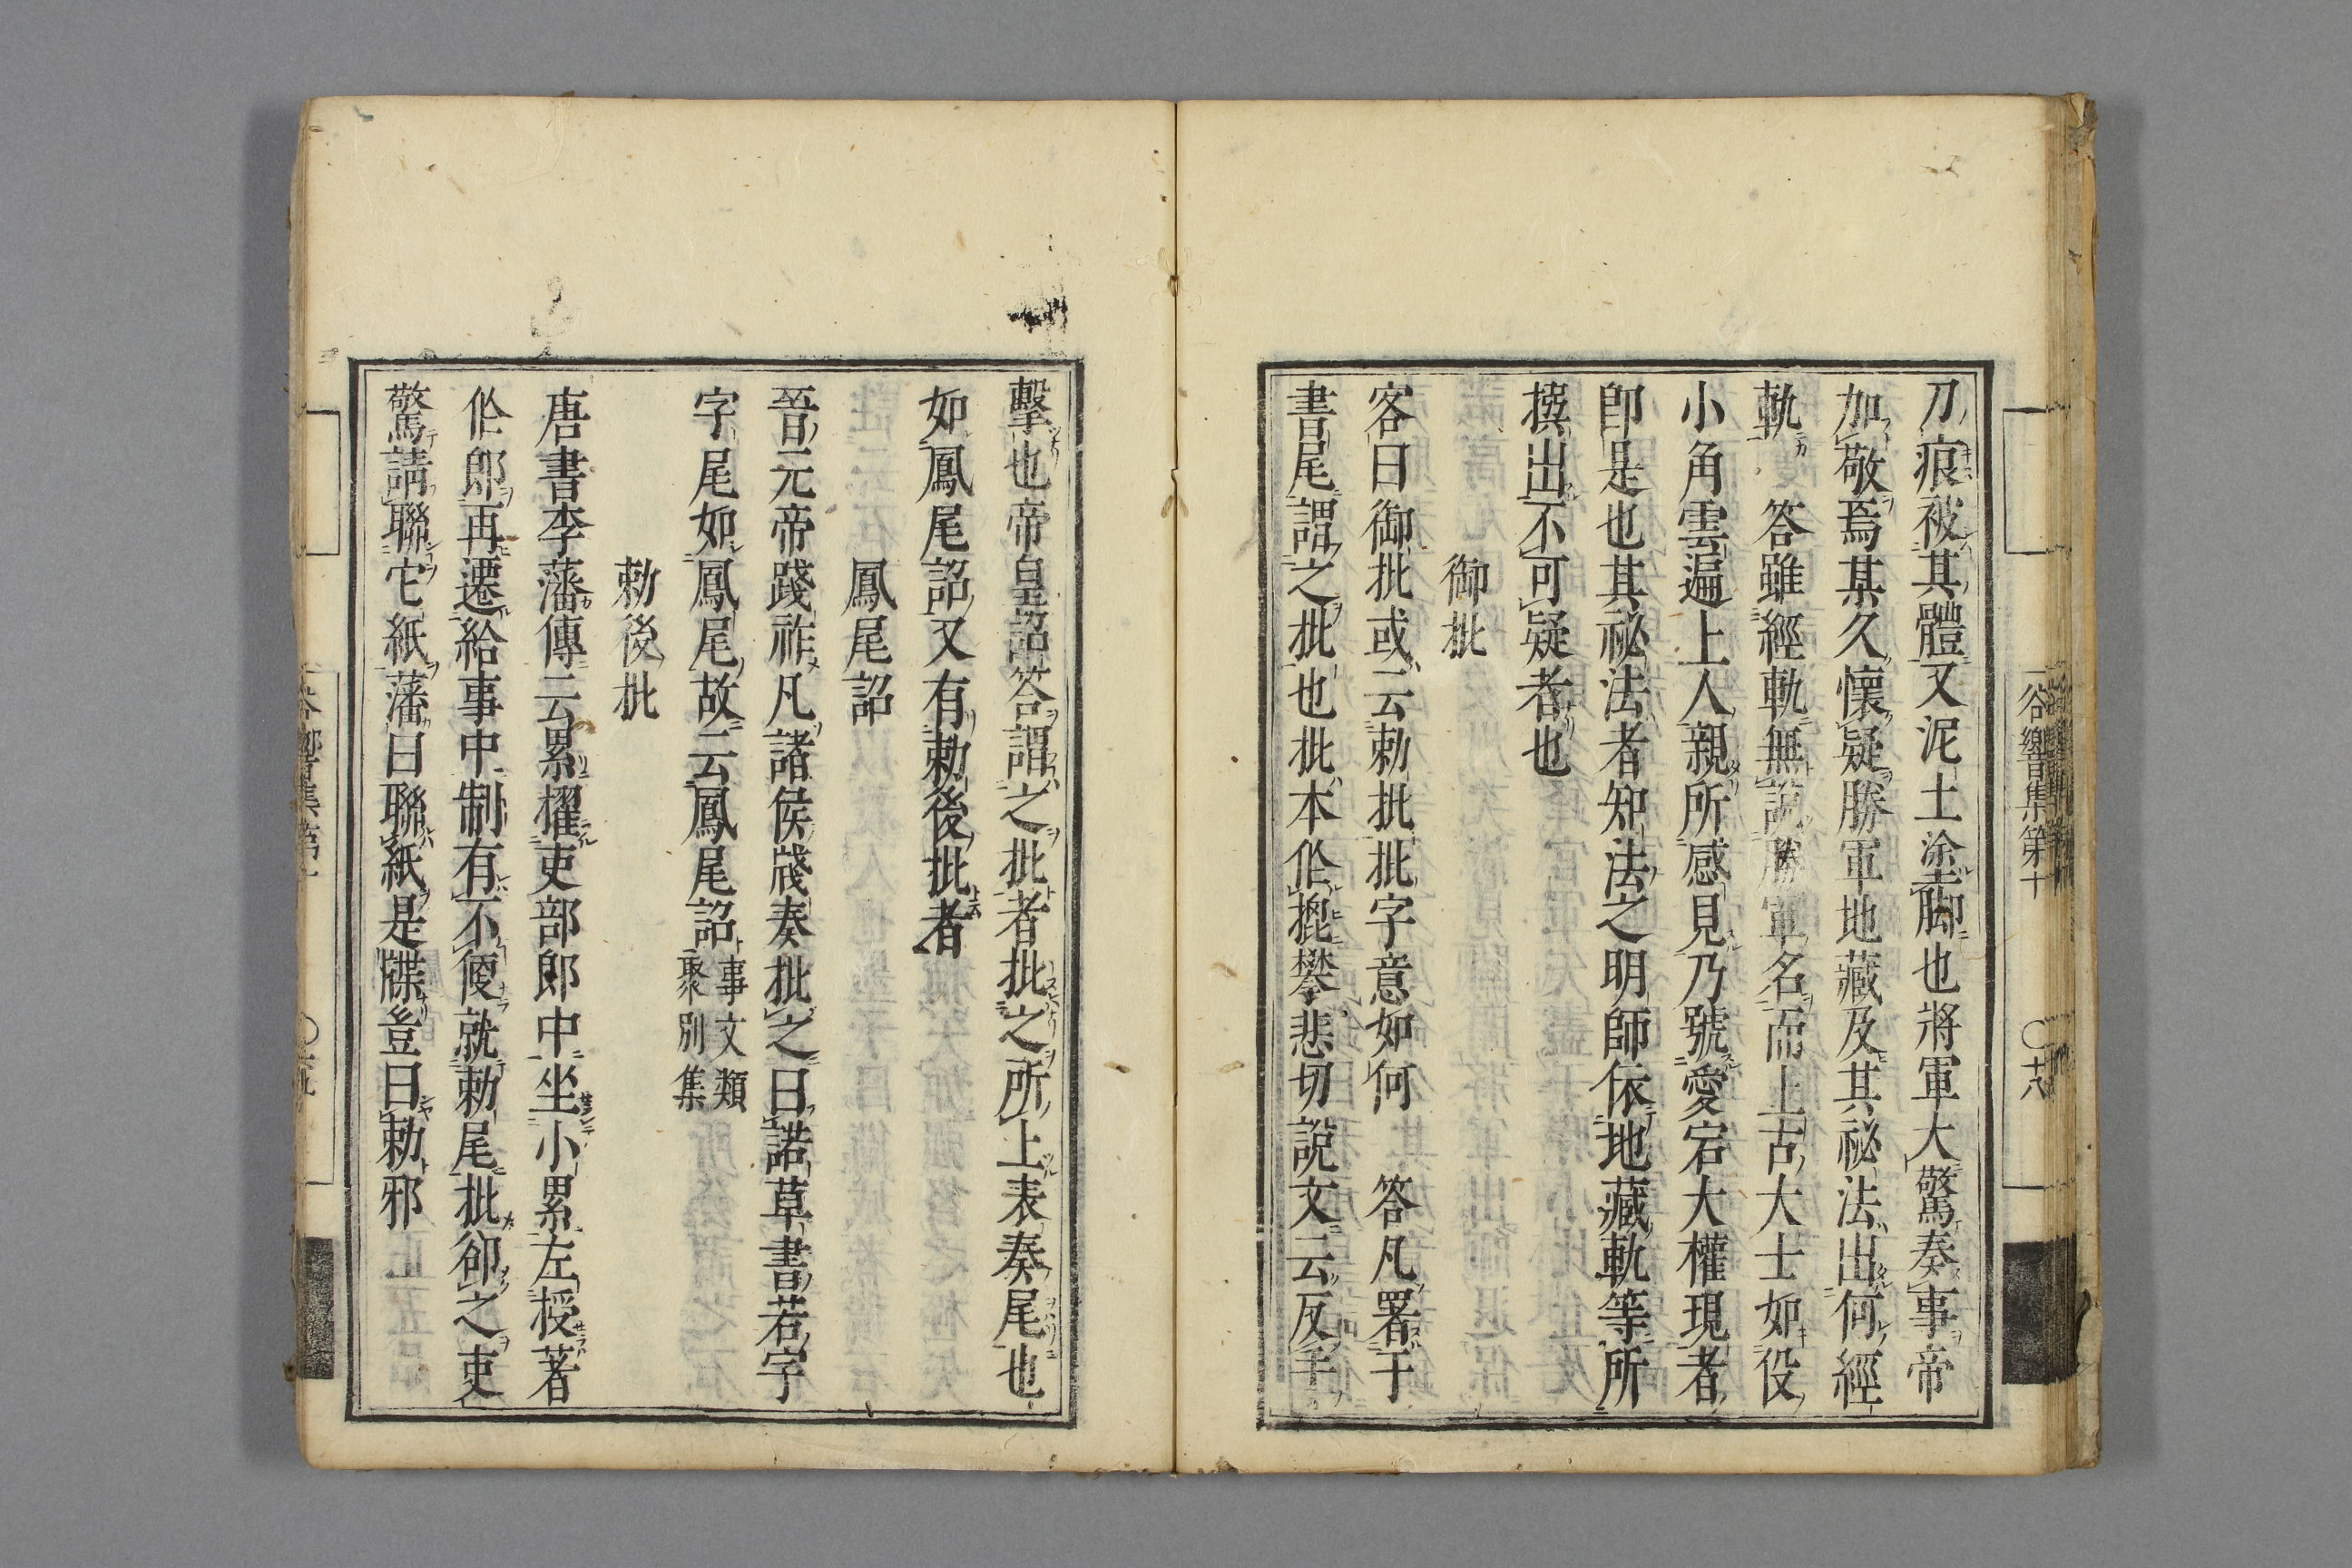 刀痕被其體又泥土塗脚也將軍大驚奏事帝
加敬焉某久懷疑勝軍地藏及其祕法出何經
軌　答雖經軌無說勝軍名而上古大士如役
小角雲遍上人親所感見乃號愛宕大權現者
即是也其祕法者知法之明師依地藏軌等所
撰出不可疑者也
御批
客曰御批或云勅批批字意如何　答凡署于
書尾謂之批也批本作㧗攀悲切說文云反手
谷響集第十
〇十八
擊也帝皇詔答謂之批者批之所上表奏尾也
如鳳尾詔又有勅後批者
鳳尾詔
晉元帝踐祚凡諸侯牋奏批之曰諾草書若字
字尾如鳳尾故云鳳尾詔事文類聚別集
勅後批
唐書李藩傳云累擢吏部郎中坐小累左授著
作郎再遷給事中制有不便就勅尾批卻之吏
驚請聯它紙藩曰聯紙是牒豈曰勅邪